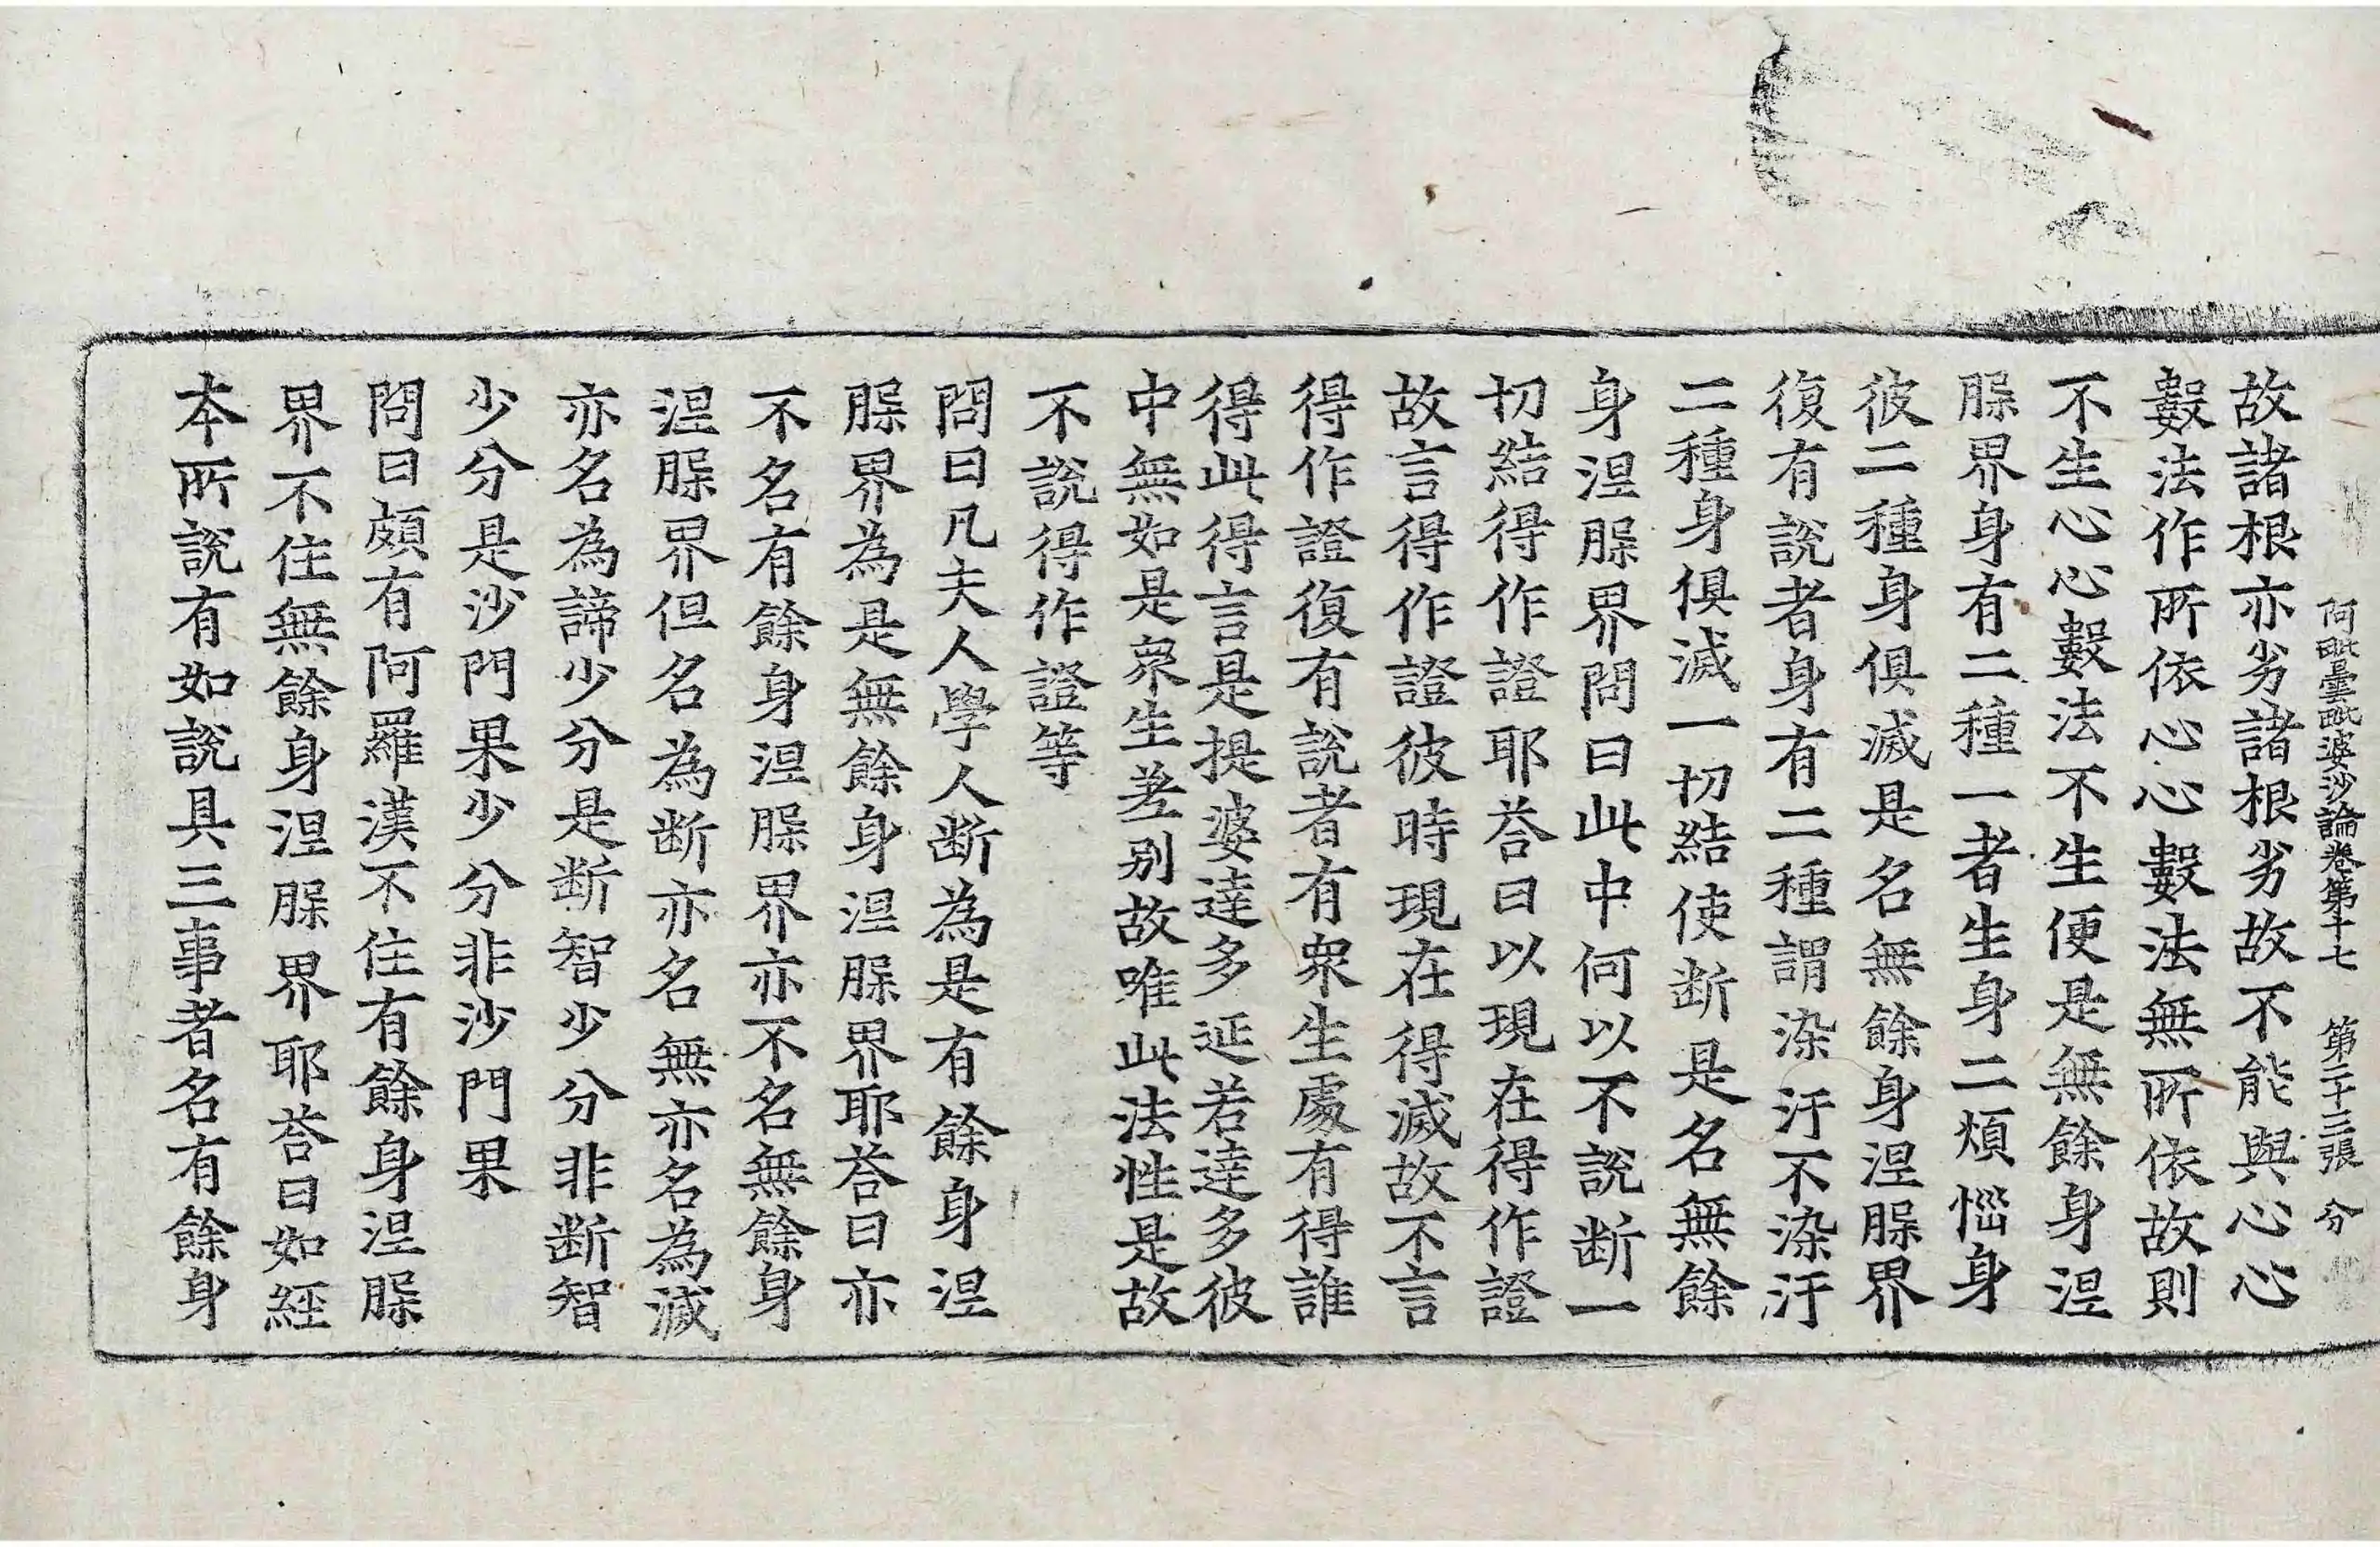 阿毗曇毗婆沙論卷第十七　第二十三張　分
故諸根亦劣諸根劣故不能與心心
數法作所依心心數法無所依故則
不生心心數法不生便是無餘身涅
槃界身有二種一者生身二煩惱身
彼二種身俱滅是名無餘身涅槃界
復有說者身有二種謂染汙不染汙
二種身俱滅一切結使斷是名無餘
身涅槃界問曰此中何以不說断一
切結得作證耶荅曰以現在得作證
故言得作證彼時現在得滅故不言
得作證復有說者有衆生處有得誰
得此得言是提婆達多延若達多彼
中無如是衆生差別故唯此法性是故
不說得作證等
問曰凡夫人學人断為是有餘身涅
槃界為是無餘身涅槃界耶荅曰亦
不名有餘身涅槃界亦不名無餘身
涅槃界但名為断亦名無亦名為滅
亦名為諦少分是断智少分非断智
少分是沙門果少分非沙門果
問曰頗有阿羅漢不住有餘身涅槃
界不住無餘身涅槃界耶荅曰如經
本所說有如說具三事者名有餘身